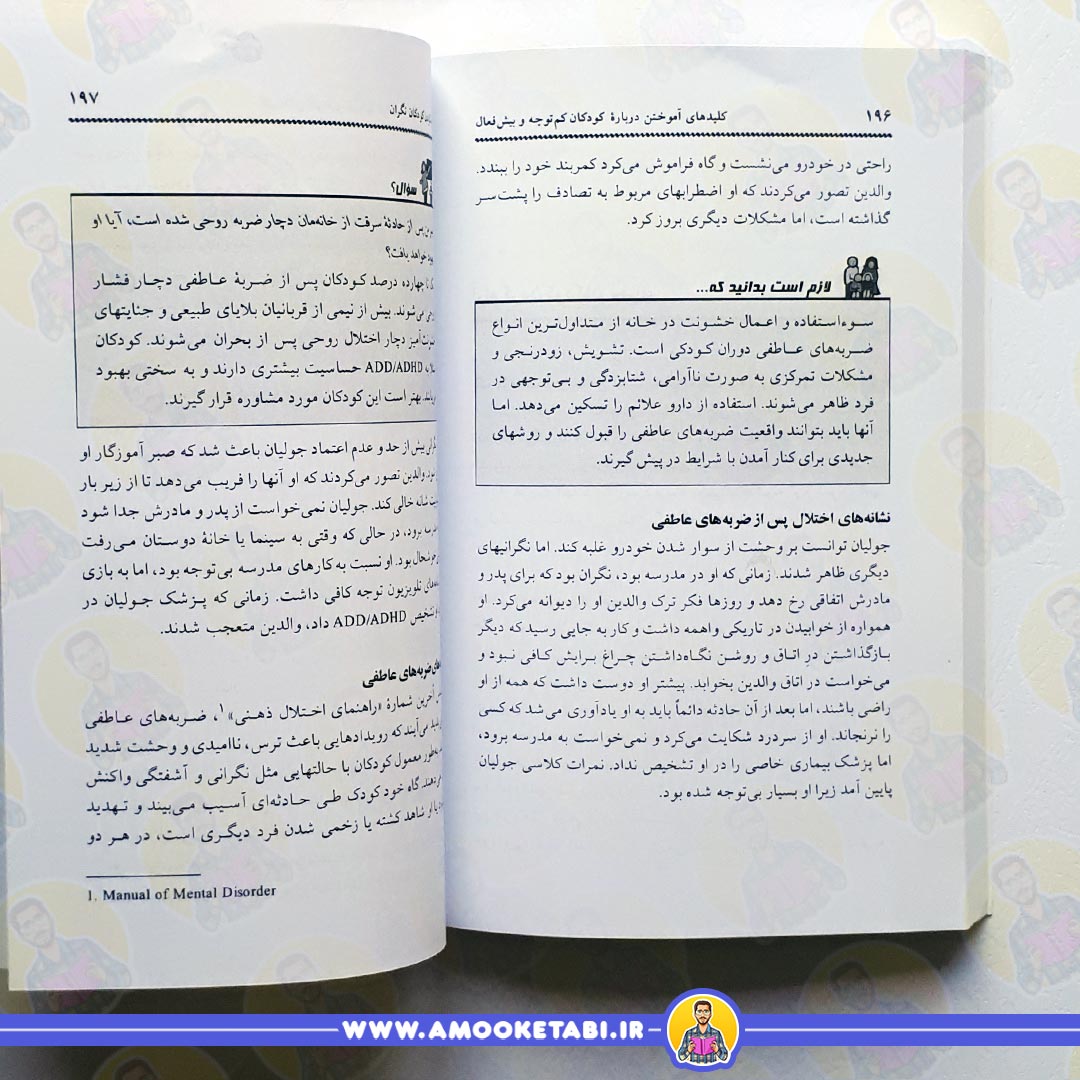 ۱۹۶
کلیدهای آموختن دربارهٔ کودکان کم‌توجه و بیش‌فعال
راحتی در خودرو می‌نشست و گاه فراموش می‌کرد کمربند خود را ببندد.
والدین تصور می‌کردند که او اضطرابهای مربوط به تصادف را پشت‌سر
گذاشته است، اما مشکلات دیگری بروز کرد.
لازم است بدانید که...
سوءاستفاده و اعمال خشونت در خانه از متداول‌ترین انواع
ضربه‌های عاطفی دوران کودکی است. تشویش، زودرنجی و
مشکلات تمرکزی به صورت ناآرامی، شتابزدگی و بی‌توجهی در
فرد ظاهر می‌شوند. استفاده از دارو علائم را تسکین می‌دهد. اما
آنها باید بتوانند واقعیت ضربه‌های عاطفی را قبول کنند و روشهای
جدیدی برای کنار آمدن با شرایط در پیش گیرند.
نشانه‌های اختلال پس از ضربه‌های عاطفی
جولیان توانست بر وحشت از سوار شدن خودرو غلبه کند. اما نگرانیهای
دیگری ظاهر شدند. زمانی که او در مدرسه بود، نگران بود که برای پدر و
مادرش اتفاقی رخ دهد و روزها فکر ترک والدین او را دیوانه می‌کرد. او
همواره از خوابیدن در تاریکی واهمه داشت و کار به جایی رسید که دیگر
بازگذاشتن درِ اتاق و روشن نگاه‌داشتن چراغ برایش کافی نبود و
می‌خواست در اتاق والدین بخوابد. پیشتر او دوست داشت که همه از او
راضی باشند، اما بعد از آن حادثه دائماً باید به او یادآوری می‌شد که کسی
را نرنجاند. او از سردرد شکایت می‌کرد و نمی‌خواست به مدرسه برود،
اما پزشک بیماری خاصی را در او تشخیص نداد. نمرات کلاسی جولیان
پایین آمد زیرا او بسیار بی‌توجه شده بود.
کودکان نگران
۱۹۷
سؤال؟
پس از حادثهٔ سرقت از خانه‌مان دچار ضربه روحی شده است، آیا او
خواهد یافت؟
تا چهارده درصد کودکان پس از ضربهٔ عاطفی دچار فشار
می‌شوند. بیش از نیمی از قربانیان بلایای طبیعی و جنایتهای
دچار اختلال روحی پس از بحران می‌شوند. کودکان
ADD/ADHD حساسیت بیشتری دارند و به سختی بهبود
بهتر است این کودکان مورد مشاوره قرار گیرند.
بیش از حد و عدم اعتماد جولیان باعث شد که صبر آموزگار او
والدین تصور می‌کردند که او آنها را فریب می‌دهد تا از زیر بار
شانه خالی کند. جولیان نمی‌خواست از پدر و مادرش جدا شود
برود، در حالی که وقتی به سینما یا خانهٔ دوستان می‌رفت
بود. او نسبت به کارهای مدرسه بی‌توجه بود، اما به بازی
تلویزیون توجه کافی داشت. زمانی که پزشک جولیان در
تشخیص ADD/ADHD داد، والدین متعجب شدند.
ضربه‌های عاطفی
آخرین شمارهٔ «راهنمای اختلال ذهنی»۱، ضربه‌های عاطفی
می‌آیند که رویدادهایی باعث ترس، ناامیدی و وحشت شدید
معمول کودکان با حالتهایی مثل نگرانی و آشفتگی واکنش
گاه خود کودک طی حادثه‌ای آسیب می‌بیند و تهدید
شاهد کشته یا زخمی شدن فرد دیگری است، در هر دو
1. Manual of Mental Disorder
WWW.AMOOKETABI.IR